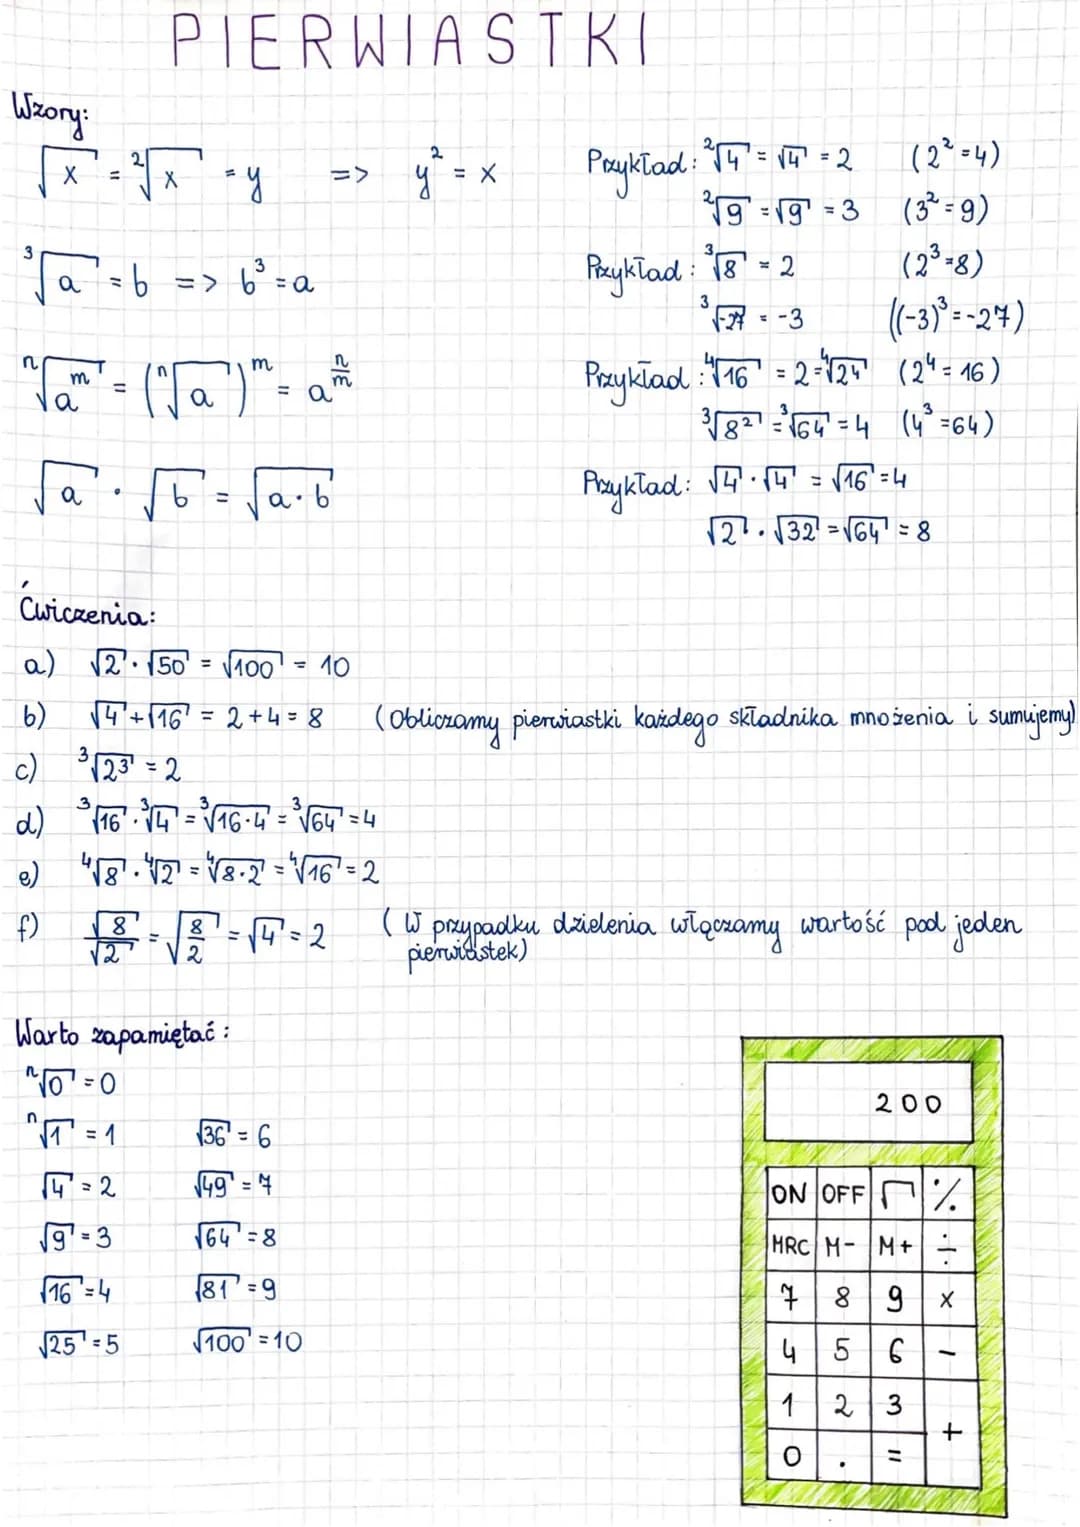 PIERWIASTKI
Wzory:
√x = ²√x = y => y² = x Przykład: ²√4 = √4 = 2 (2² = 4)
²√9 = √9 = 3 (3² = 9)
³√a = b => b³ = a Przykład: ³√8 = 2 (2³ = 8)
³√-27 = -3 ((-3)³ = -27)
ⁿ√aᵐ = (ⁿ√a)ᵐ = a^(n/m) Przykład: ⁴√16 = 2 = ⁴√2⁴ (2⁴ = 16)
³√8² = ³√64 = 4 (4³ = 64)
√a · √b = √a·b Przykład: √4 · √4 = √16 = 4
√2 · √32 = √64 = 8
Ćwiczenia:
a) √2 · √50 = √100 = 10
b) √4 + √16 = 2 + 4 = 8 (Obliczamy pierwiastki każdego składnika mnożenia i sumujemy)
c) ³√2³ = 2
d) ³√16 · ³√4 = ³√16·4 = ³√64 = 4
e) ⁴√8 · ⁴√2 = ⁴√8·2 = ⁴√16 = 2
f) √8/√2 = √(8/2) = √4 = 2 (W przypadku dzielenia włączamy wartość pod jeden
pierwiastek)
Warto zapamiętać:
ⁿ√0 = 0
ⁿ√1 = 1 √36 = 6
√4 = 2 √49 = 7
√9 = 3 √64 = 8
√16 = 4 √81 = 9
√25 = 5 √100 = 10
200
ON OFF √ %
MRC M- M+ ÷
7 8 9 x
4 5 6 -
1 2 3 +
0 . =